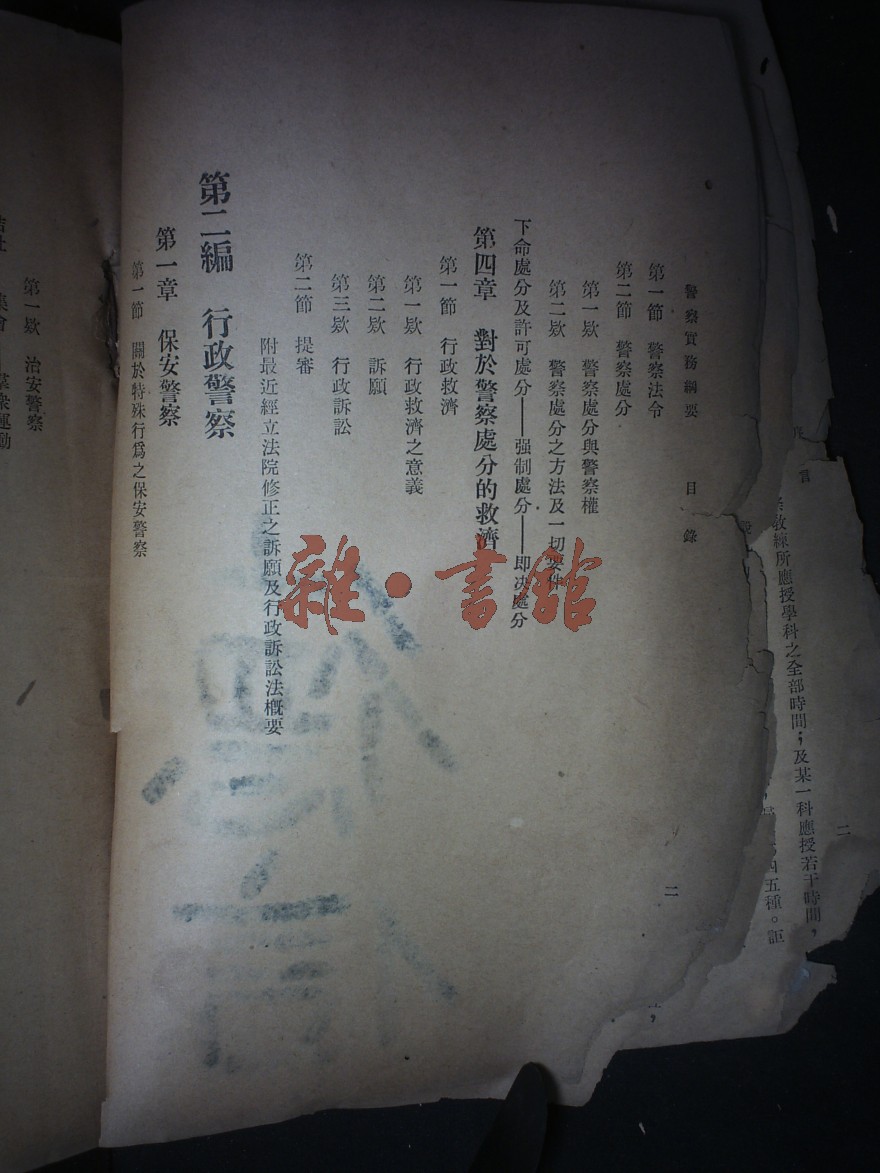 警察實務綱要 目錄
第一節 警察法令
第二節 警察處分
第一欵 警察處分與警察權
第二欵 警察處分之方法及一切要件
下命處分及許可處分——强制處分——即决處分
第四章 對於警察處分的救濟
第一節 行政救濟
第一欵 行政救濟之意義
第二欵 訴願
第三欵 行政訴訟
第二節 提審
附最近經立法院修正之訴願及行政訴訟法概要
第二編 行政警察
第一章 保安警察
第一節 關於特殊行爲之保安警察
二
第一欵 治安警察
集會——羣衆運動
言
二
教練所應授學科之全部時間；及某一科應授若干時間，
四五種。詎
雜·書館